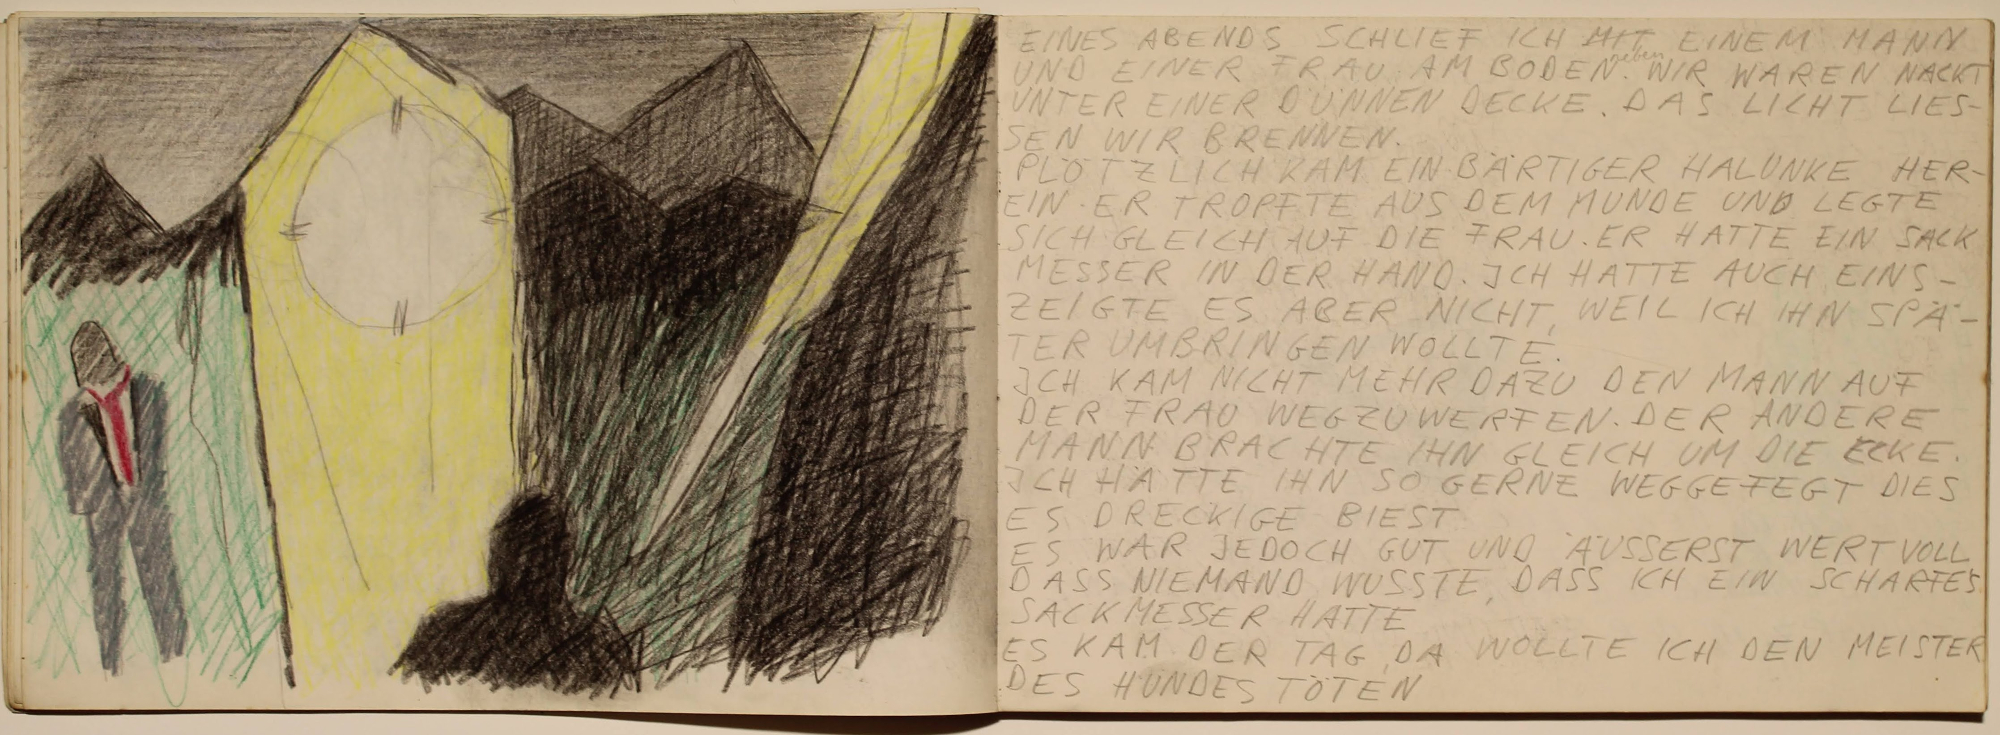 EINES ABENDS SCHLIEF ICH MIT EINEM MANN
UND EINER FRAU AM BODEN. WIR WAREN NACKT
UNTER EINER DÜNNEN DECKE. DAS LICHT LIES-
SEN WIR BRENNEN.
PLÖTZLICH KAM EIN BÄRTIGER HALUNKE HER-
EIN. ER TROPFTE AUS DEM MUNDE UND LEGTE
SICH GLEICH AUF DIE FRAU. ER HATTE EIN SACK
MESSER IN DER HAND. ICH HATTE AUCH EINS-
ZEIGTE ES ABER NICHT, WEIL ICH IHN SPÄ-
TER UMBRINGEN WOLLTE.
ICH KAM NICHT MEHR DAZU DEN MANN AUF
DER FRAU WEGZUWERFEN. DER ANDERE
MANN BRACHTE IHN GLEICH UM DIE ECKE.
ICH HÄTTE IHN SO GERNE WEGGEFEGT DIES
ES DRECKIGE BIEST
ES WAR JEDOCH GUT UND ÄUSSERST WERTVOLL
DASS NIEMAND WUSSTE, DASS ICH EIN SCHARFES
SACKMESSER HATTE
ES KAM DER TAG, DA WOLLTE ICH DEN MEISTER
DES HUNDES TÖTEN